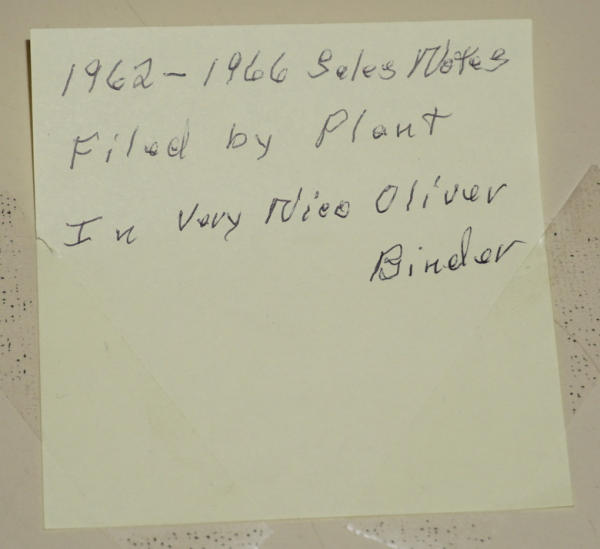 1962 - 1966 Sales Notes
Filed by Plant
In Very Nice Oliver
Binder